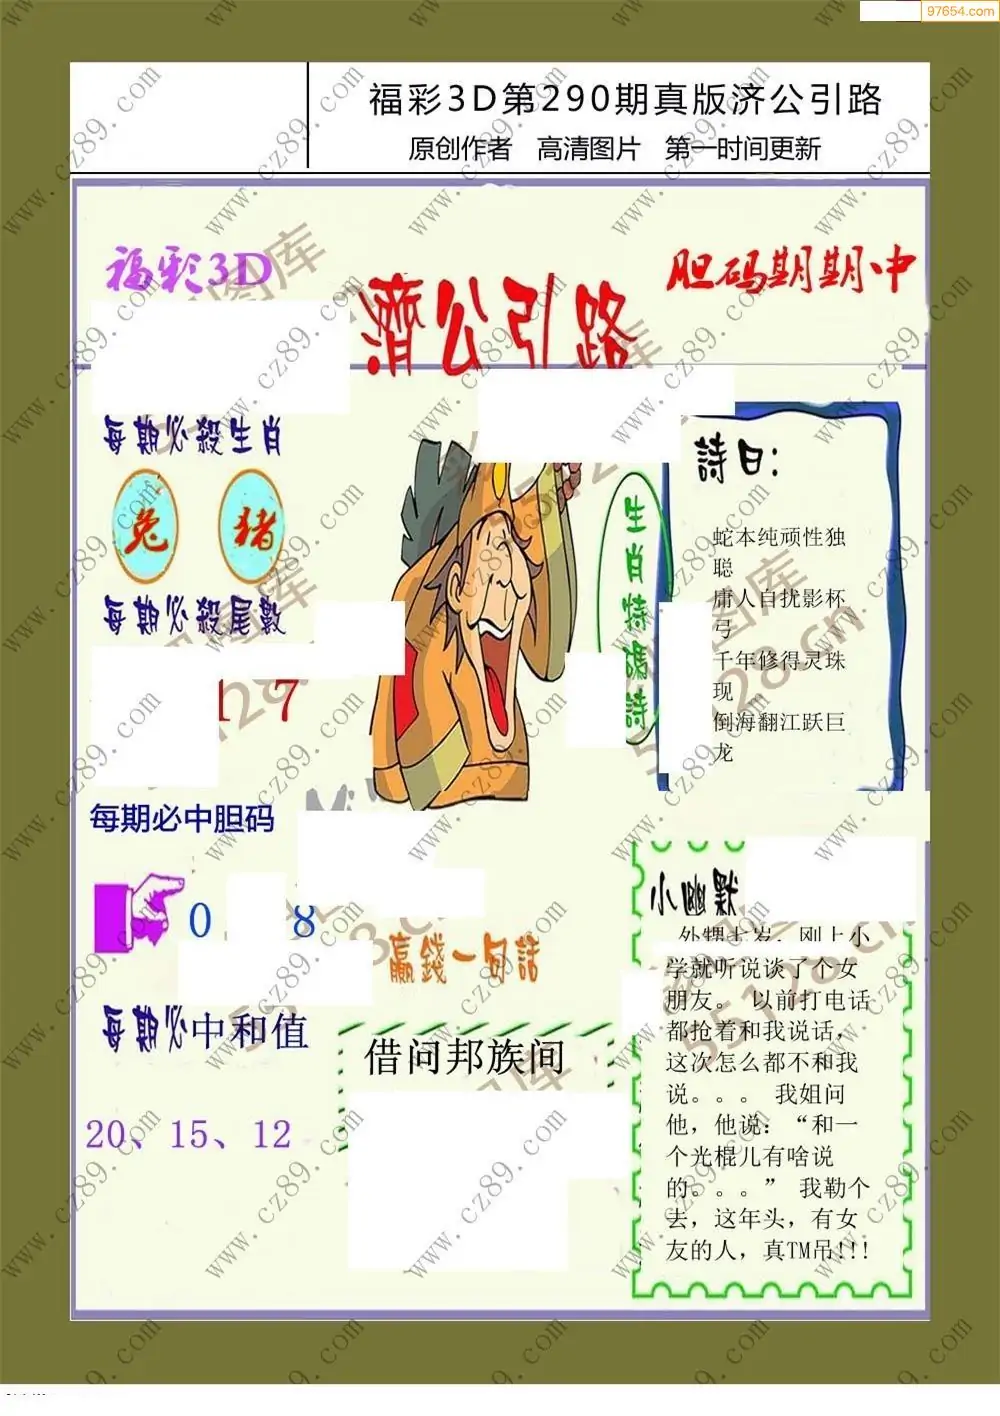 97654.com
福彩3D第290期真版济公引路
原创作者 高清图片 第一时间更新
福彩3D
胆码期期中
濟公引路
每期必殺生肖
兔 猪
每期必殺尾數
1 7
生肖特碼詩
詩曰:
蛇本纯顽性独
聪
庸人自扰影杯
弓
千年修得灵珠
现
倒海翻江跃巨
龙
每期必中胆码
0 8
赢錢一句話
借问邦族间
每期必中和值
20、15、12
小幽默
外甥七岁，刚上小
学就听说谈了个女
朋友。 以前打电话
都抢着和我说话，
这次怎么都不和我
说。。。 我姐问
他，他说：“和一
个光棍儿有啥说
的。。。” 我勒个
去，这年头，有女
友的人，真TM吊!!!
www.cz89.com